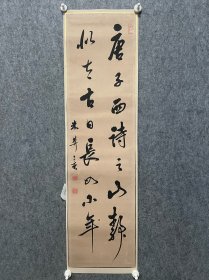 唐子西詩云山靜
似太古日長如小年
朱